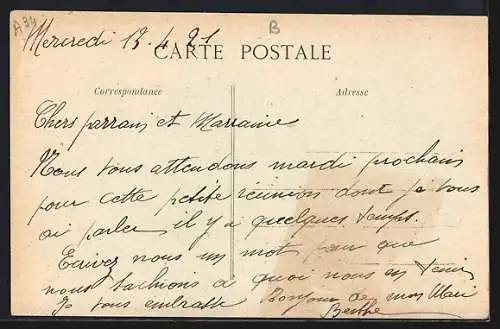 A34
B
Mercredi 13.4.21
CARTE POSTALE
Correspondance
Adresse
Chers parrain et Marraine
Nous vous attendons mardi prochain
pour cette petite réunion dont je vous
ai parler il y a quelques temps.
Ecrivez nous un mot pour que
nous sachions à quoi nous en tenir
Je vous embrasse Bonjour de mon Mari
Berthe